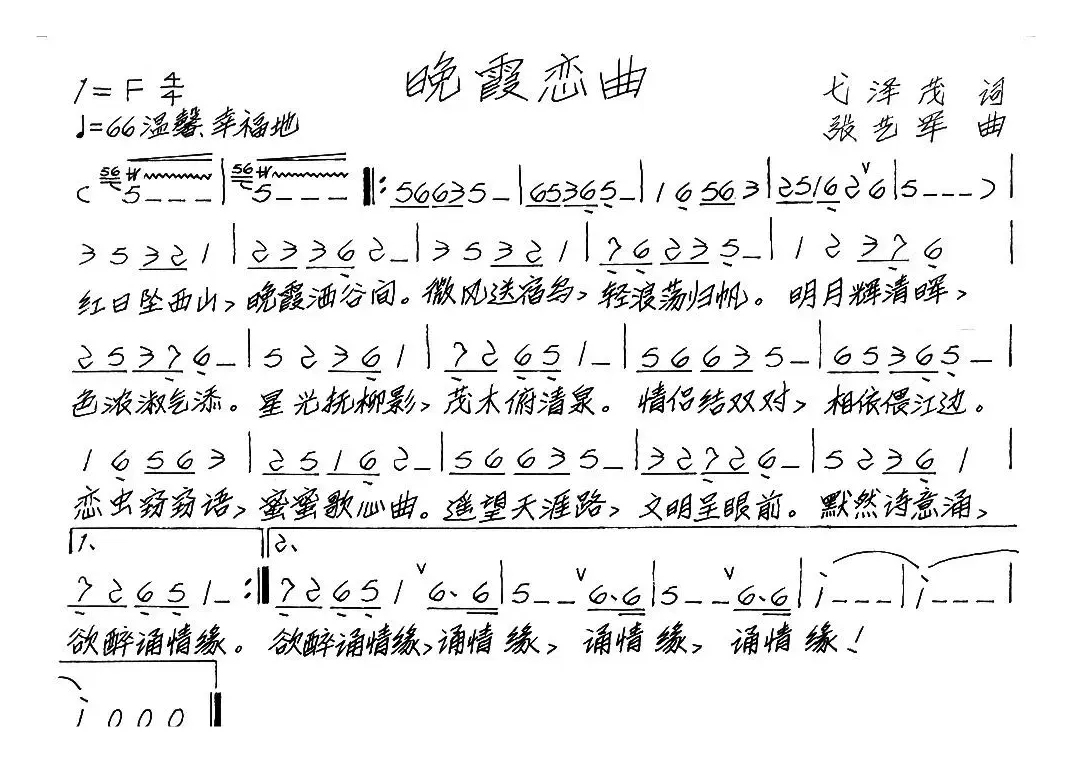 晚霞恋曲
1=F 4/4
♩=66 温馨、幸福地
弋泽茂 词
张艺军 曲
( 56 5 _ _ _ | 56 5 _ _ _ ‖: 56635_ | 65365_ | 16563 | 2516 2 ∨6 | 5 _ _ _ ) |
3 5 3 2 1 | 2 3 3 6 2 _ | 3 5 3 2 1 | 7 6 2 3 5 _ | 1 2 3 7 6 |
红日坠西山、晚霞洒谷间。微风送宿鸟、轻浪荡归帆。明月辉清晖、
2 5 3 7 6 _ | 5 2 3 6 1 | 7 2 6 5 1 _ | 5 6 6 3 5 _ | 6 5 3 6 5 _ |
色浓淑气添。星光抚柳影、茂木俯清泉。情侣结双对、相依偎江边。
1 6 5 6 3 | 2 5 1 6 2 _ | 5 6 6 3 5 _ | 3 2 7 2 6 _ | 5 2 3 6 1 |
恋虫窃窃语、蜜蜜歌心曲。遥望天涯路、文明呈眼前。默然诗意涌、
1、 2、
7 2 6 5 1 _ :‖ 7 2 6 5 1 ∨ 6·6 | 5 _ _ ∨ 6·6 | 5 _ _ ∨ 6·6 | i _ _ _ | i _ _ _ |
欲醉诵情缘。欲醉诵情缘、诵情缘、诵情缘、诵情缘！
i 0 0 0 ‖